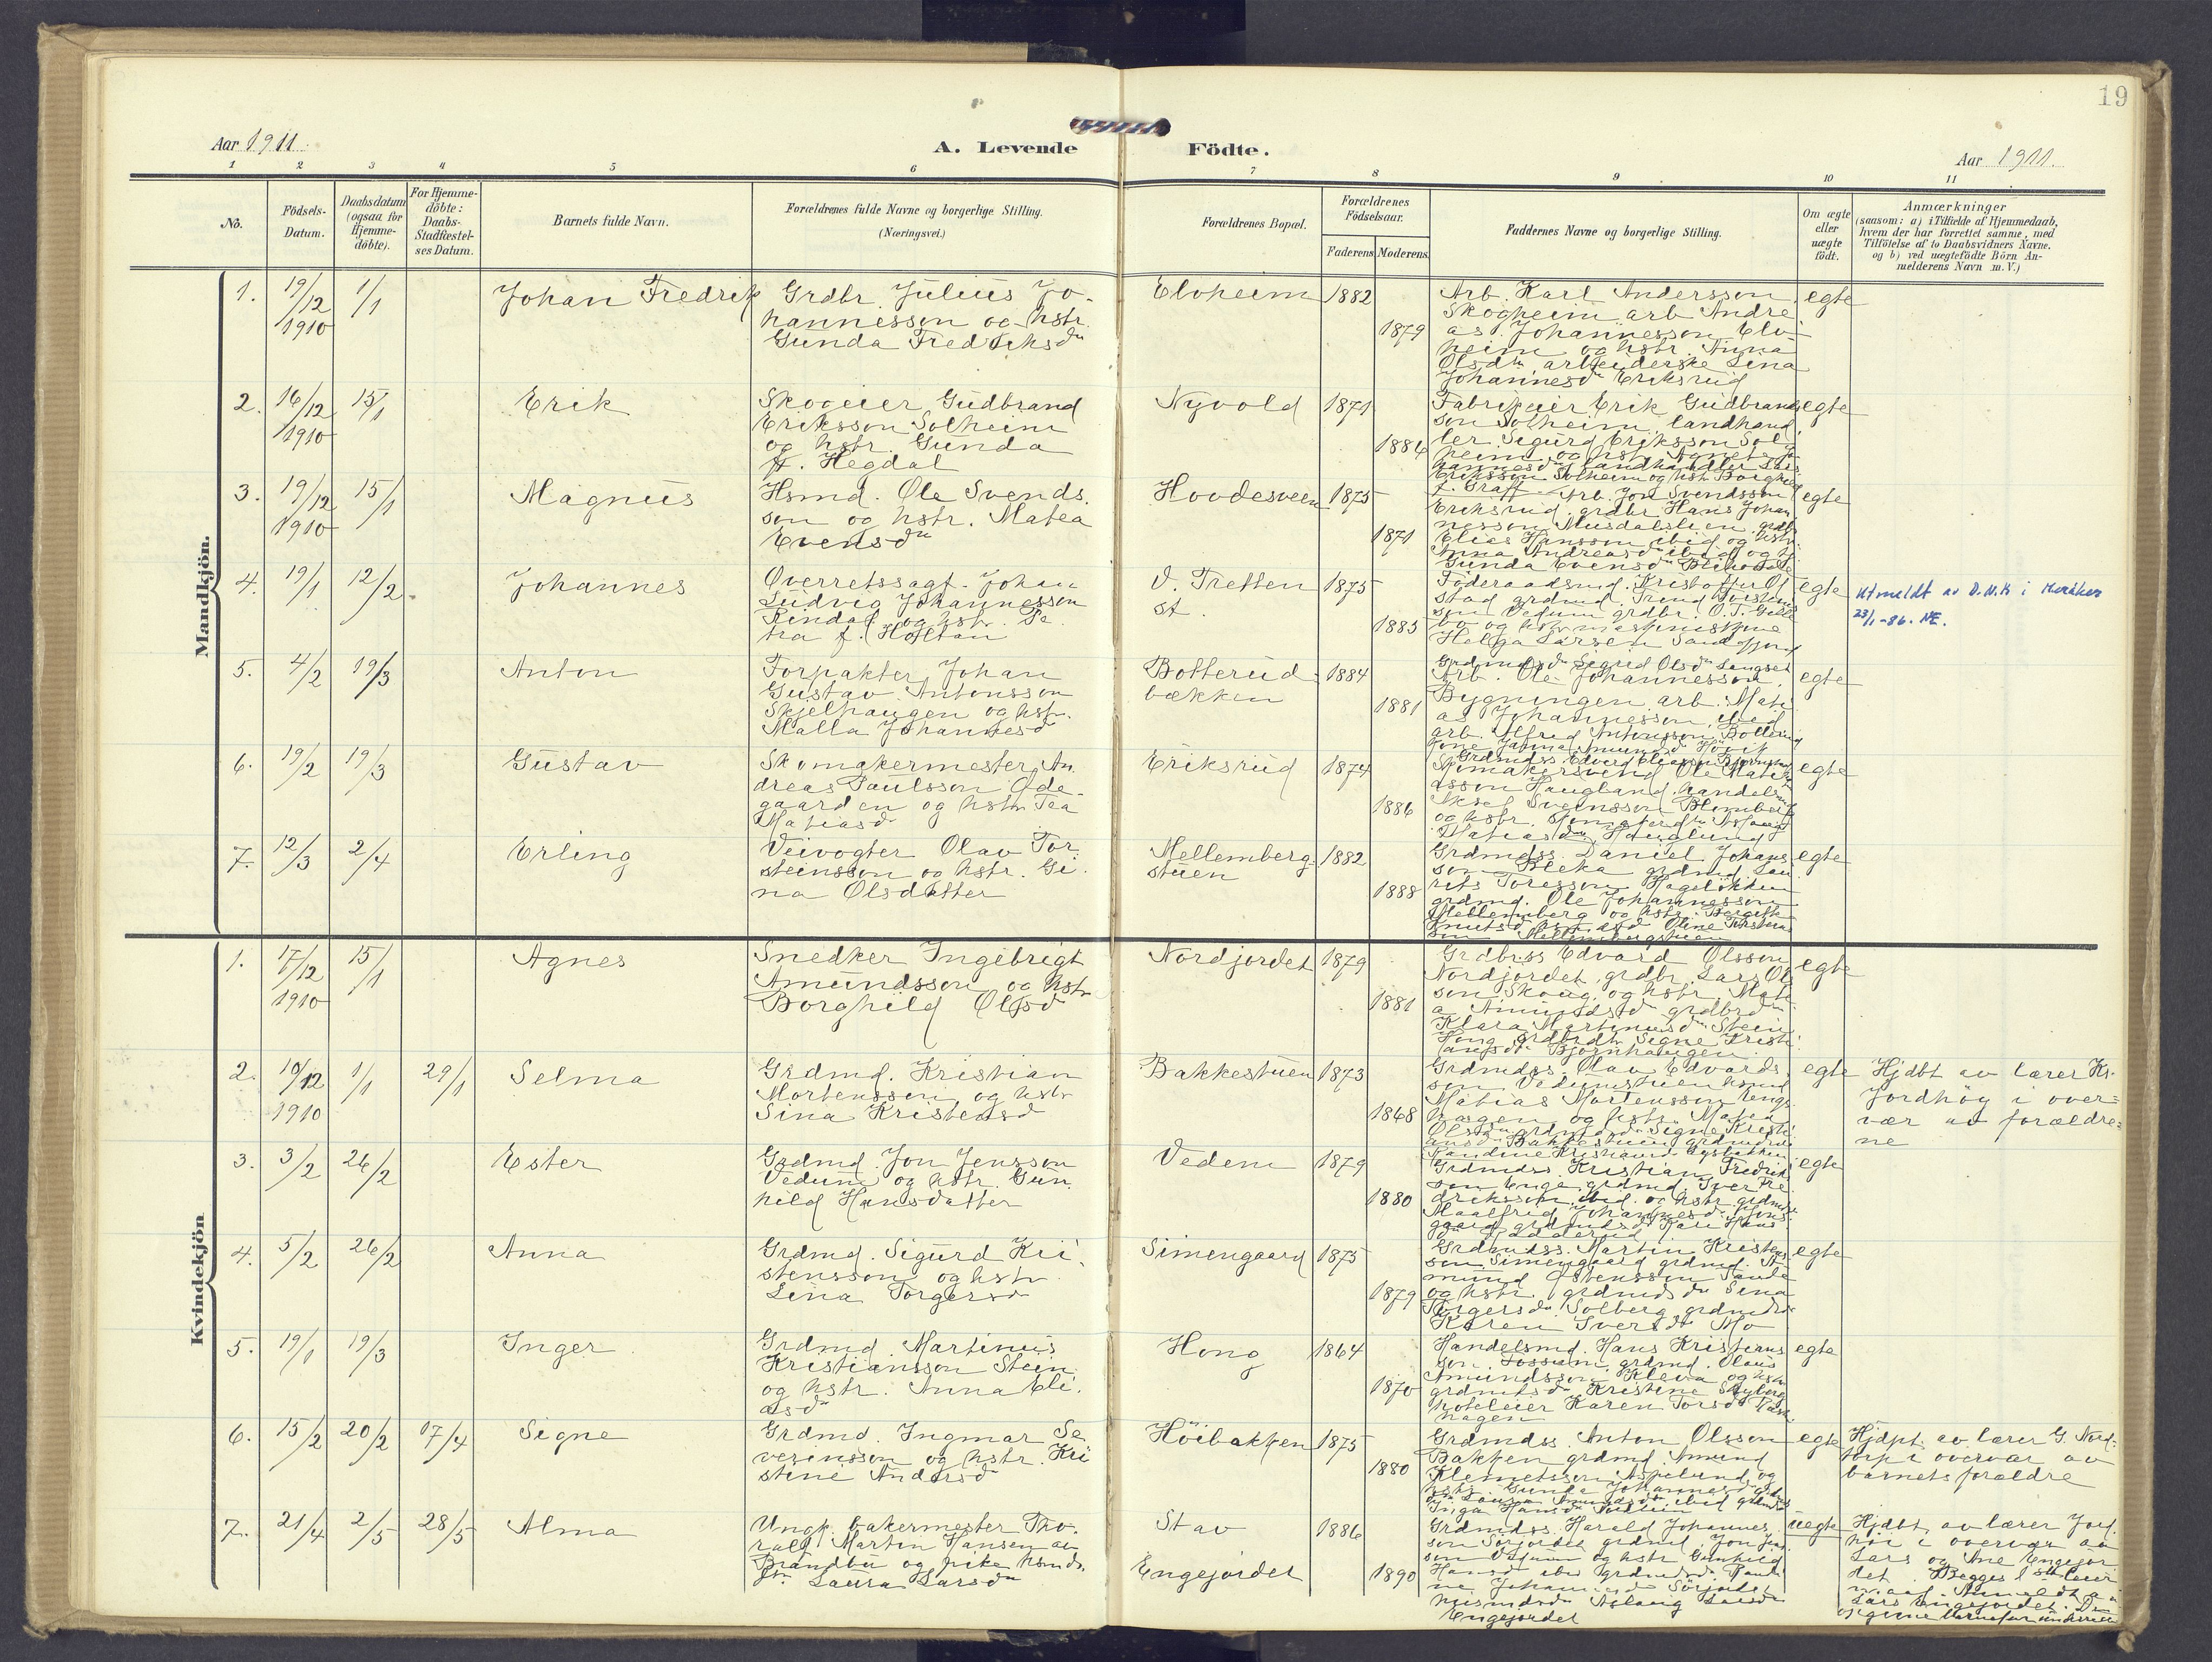 19
Aar 1911
A. Levende Födte.
Aar 1911.
1 2 3 4 5 6 7 8 9 10 11
No.
Födsels-
Datum.
Daabsdatum
(ogsaa for
Hjemme-
döbte).
For Hjemme-
döbte:
Daabs-
Stadfæstel-
ses Datum.
Barnets fulde Navn.
Forældrenes fulde Navne og borgerlige Stilling.
(Næringsvei.)
Forældrenes Bopæl.
Forældrenes
Födselsaar.
Faderens Moderens
Faddernes Navne og borgerlige Stilling.
Om ægte
eller
uægte
födt.
Anmærkninger
(saasom: a) i Tilfælde af Hjemmedaab,
hvem der har forrettet samme, med
Tilföielse af to Daabsvidners Navne.
og b) ved uægtefödte Börn An-
melderens Navn m. V.)
Mandkjön.
1. 19/12 1910 1/1 Johan Fredrik
Grdbr. Julius Jo-
hannesson og hstr.
Gunda Fredriksdn
Elvheim 1882 1879
Arb. Karl Andersson
Skogheim arb Andre
as Johannesson Elv
heim og hstr. Anna
Olsdn, arbeiderske Lina
Johannesdn Eriksrud
egte
2. 16/12 1910 15/1 Erik
Skogeier Gudbrand
Eriksson Solheim
og hstr. Gunda
f. Hegdal
Nyvold 1871 1884
Fabrikeier Erik Gudbrands
son Solheim, landhand
ler Sigurd Eriksson Sol
heim og hstr. Agnete Jo
hannesdn, landhandler Lars
Eriksson Solheim og hstr Borghild
f. Graff
egte
3. 19/12 1910 15/1 Magnus
Hsmd. Ole Svends
son og hstr. Matea
Evensdn
Hovdesveen 1875 1871
Arb. Jon Svendsson
Eriksrud, grdbr Hans Johan
nesson Musdalslien, grdbr
Elias Hansson ibid og hstr.
Anna Andreasdn ibid og
Gunda Evensdn
egte
4. 19/1 12/2 Johannes
Overretssagf. Johan
Ludvig Johannesson
Rindal og hstr. Pe
tra f. Holtan
V. Tretten
st.
1875 1885
Föderaadsmd. Kristoffer Öl
stad grdmd. Trond Torstens
son Vedum grdbr. O. T. Gille
bo og hstr.
Helga Larsen Sandefjord
Grdmdsdn Sigrid Olsdn
egte
Utmeldt av D.N.K i Meråker
23/1-86. NE.
5. 4/2 19/3 Anton
Forpakter Johan
Gustav Antonsson
Skjelhaugen og hstr.
Malla Johannesd
Botterud
bækken
1884 1881
Arb. Ole Johannesson
Bygningen arb. Mati
as Johannesson ibid
arb. Alfred Antonsson Botterud
egte
6. 19/2 19/3 Gustav
Skomakermester An
dreas Paulsson Öde-
gaarden og hstr Tea
Matiasd
Eriksrud 1874 1886
Skomakersvend Ole Mati
asson Haugland, handelsmd
Aksel Svensson Blomberg
og hstr.
Matiasdn Haugland
egte
7. 12/3 2/4 Erling
Veivogter Olav Tor
steinsson og hstr. Gi
na Olsdatter
Mellemberg-
stuen
1882 1888
Grdmdss Daniel Johans
son Bleka grdmd. Lau
rits Toresson Hagelökken
grdmd. Ole Johannesson
Mellemberg og hstr. Bergitte
Knutsd
Mellembergstuen
egte
Kvindekjön
1. 17/12 1910 15/1 Agnes
Snedker Ingebrigt
Amundsson og hstr
Borghild Olsd
Nordjordet 1879 1881
Grdbrss Edvard Olsson
Nordjordet, grdbr. Lars Ol
son Skoug og hstr Mate
a Amundsd grdbrdn
Klara Martinusdn Stein
Hong grdbrdn Signe Kristi
ansdn Björnhaugen.
egte
2. 10/12 1910 1/1 29/1 Selma
Grdmd. Kristian
Mortensson og hstr
Sina Kristensd
Bakkestuen 1873 1868
Grdmdss. Olav Edvards
son Vedumstuen hsmd
Matias Mortensson Enge
hagen og hstr Matea
Olsdn grdmdsdn Signe Kristi
ansdn Bakkestuen grdmdsdn
egte
Hjdbt av lærer Kr.
Jordhöy i over=
vær av forældre=
ne
3. 3/2 26/2 Ester
Grdmd. Jon Jensson
Vedum og hstr. Gun
hild Hansdatter
Vedem 1879 1880
Grdmdss. Kristian Fredrik
son Enge, grdmd. Iver Fre
driksson ibid. og hstr. grdmds
Maalfrid Johannesdn
gaard grdmdsdn Kari Hans
egte
4. 5/2 26/2 Anna
Grdmd. Sigurd Kri
stensson og hstr
Lina Torgersd
Simengaard 1875 1879
Grdmdss. Martin Kristens
son Simengaard grdmd. A
mund Östensson Sande
og hstr. grdmdsdn Sina
Torgersdn Solberg grdmdsdn
Karen Iversdn Mo
egte
5. 19/1 19/3 Inger
Grdmd. Martinus
Kristiansson Stein
og hstr. Anna Eli
asdn
Hong 1864 1870
Handelsmd. Hans Kristians
son. Fossum, grdmd. Olaus
Amundsson Kleva og hstr
grdmdsdn Kristine Skyberg
hoteleier Karen Torsdn
hagen
egte
6. 15/2 20/2 17/4 Signe
Grdmd. Ingmar Se
verinsson og hstr. Kri
stine Andersd
Höibakken 1875 1880
Grdmdss. Anton Olsson
Bakken grdmd. Amund
Klemetsson Aspelund og
hstr Gunda Johannesdn
egte
Hjdpt. av lærer G. Nord-
torp i overvær av
barnets forældre
7. 21/4 2/5 28/5 Alma
Ungk. bakermester Tho.
ralf Martin Hansen av
Brandbu og pike hsmds
dn Laura Larsdn
Stav
Engejordet
1886 1890
Grdmdss. Harald Johannes
son Sörjordet grdmd. Jon Jens
son Vedum og hstr Gunhild
Hansd ibid grdmdsdn Pauli
ne Johannesdn Sörjordet
husmdsdn Aslaug Larsdn
Engejordet
uegte
Hjdbt av lærer Jord
höi i overvær av
Lars og Ane Engejor
det. Begges 1ste leier
maal. Anmeldt av
Lars Engejordet.